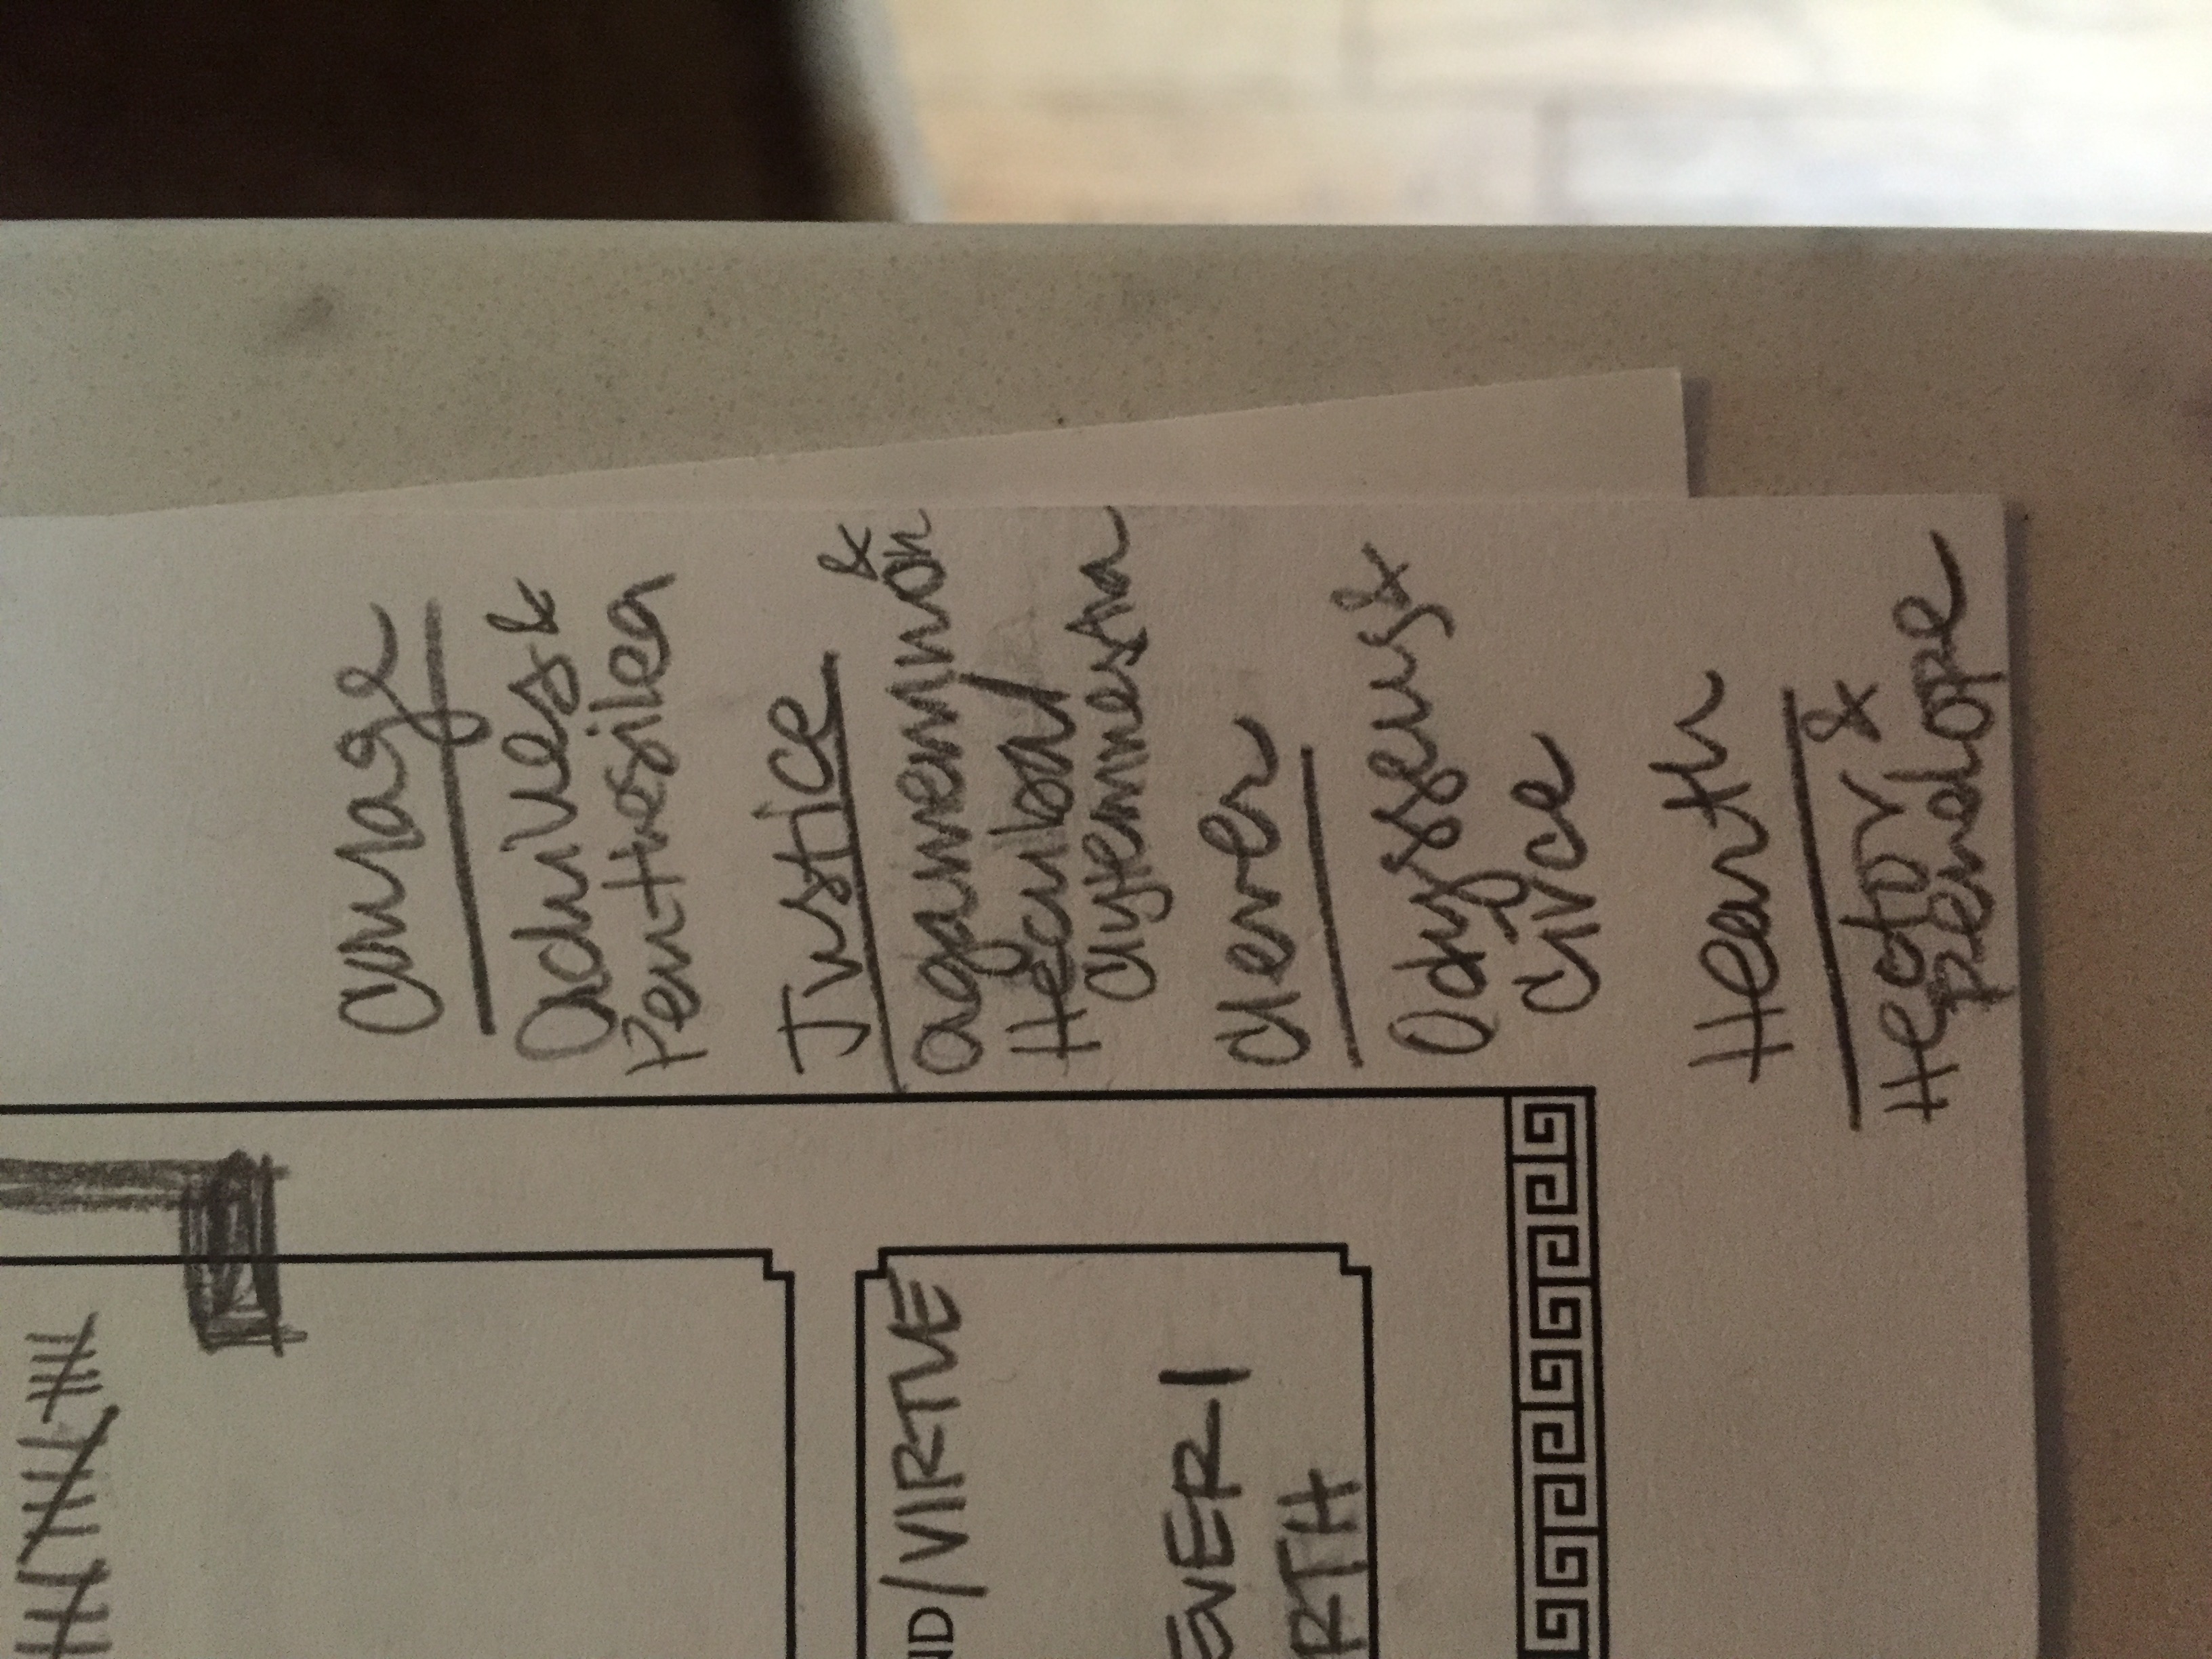 Courage
Achilles &
Penthesilea
Justice
&
agamemnon
Hecuba/
Clytemnestra
Clever
Odysseus &
Circe
Hearth
Hector &
Penelope
ND/VIRTUE
EVER I
RTH